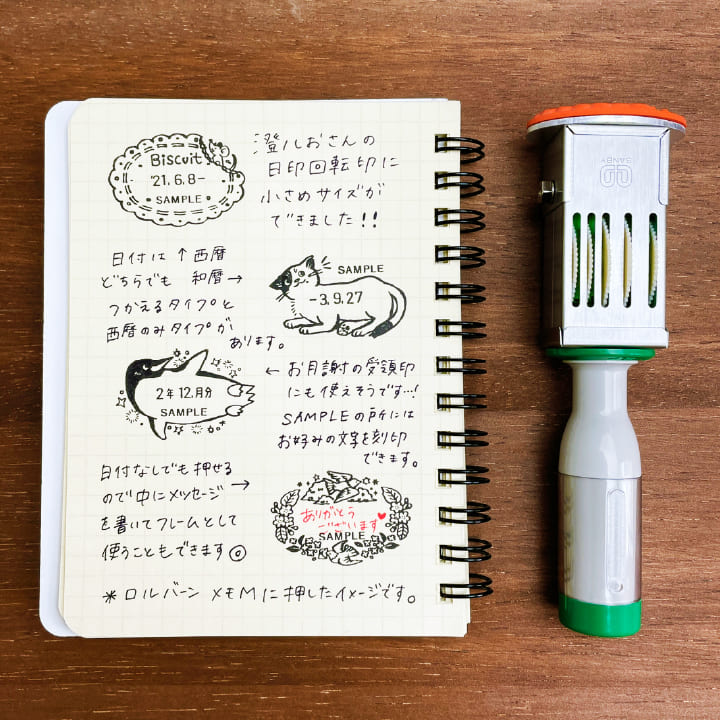 Biscuit
'21.6.8-
SAMPLE
澄ルおさんの
日印回転印に
小さめサイズが
できました!!
日付は↑西暦
どちらでも 和暦→
つかえるタイプと
西暦のみタイプが
あります。
SAMPLE
-3.9.27
2年12.月分
SAMPLE
← お月謝の受領印
にも使えそうです…!
SAMPLEの所には
お好みの文字を刻印
できます。
日付なしでも押せる
ので中にメッセージ →
を書いてフレームとして
使うこともできます
ありがとう
ございます
SAMPLE
*ロルバーン メモMに押したイメージです。
SANBY